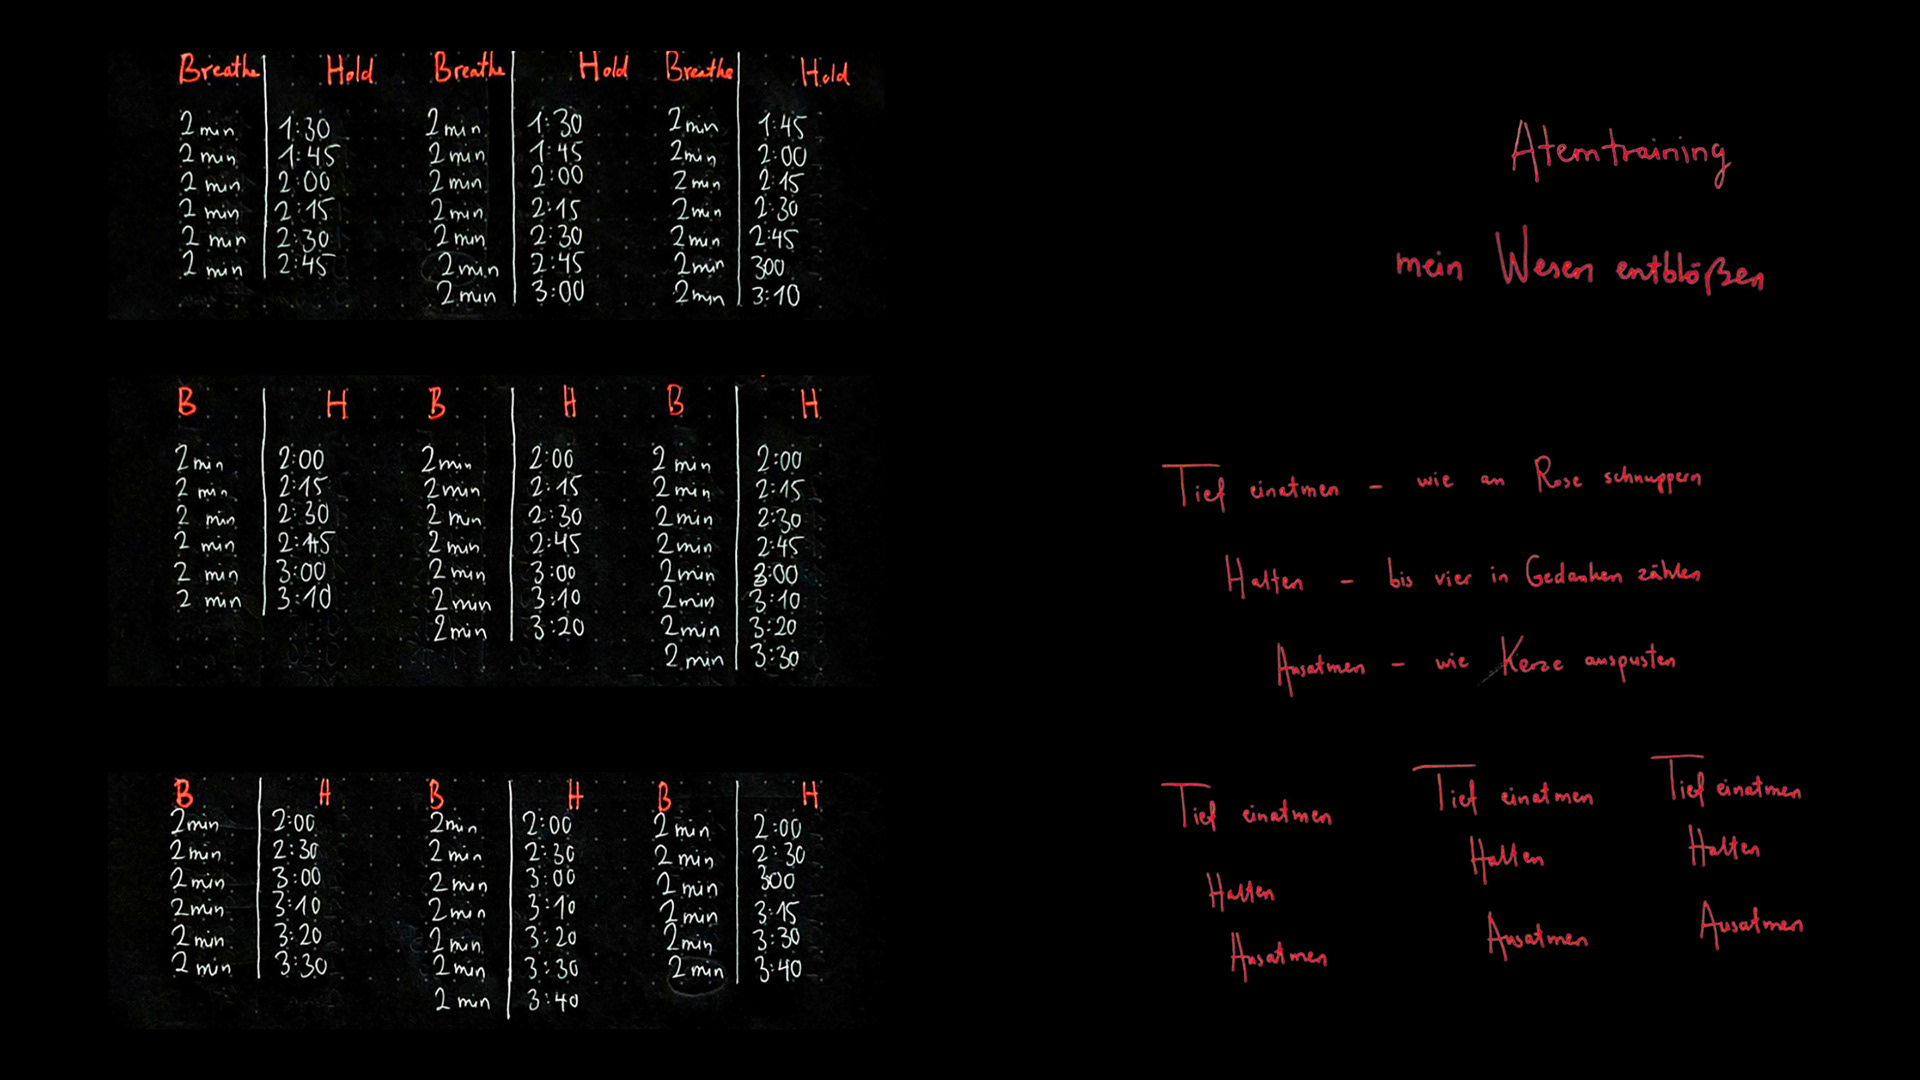 Breathe Hold Breathe Hold Breathe Hold
2 min 1:30 2 min 1:30 2 min 1:45
2 min 1:45 2 min 1:45 2 min 2:00
2 min 2:00 2 min 2:00 2 min 2:15
2 min 2:15 2 min 2:15 2 min 2:30
2 min 2:30 2 min 2:30 2 min 2:45
2 min 2:45 2 min 2:45 2 min 300
2 min 3:00 2 min 3:10
B H B H B H
2 min 2:00 2 min 2:00 2 min 2:00
2 min 2:15 2 min 2:15 2 min 2:15
2 min 2:30 2 min 2:30 2 min 2:30
2 min 2:45 2 min 2:45 2 min 2:45
2 min 3:00 2 min 3:00 2 min 3:00
2 min 3:10 2 min 3:10 2 min 3:10
2 min 3:20 2 min 3:20
2 min 3:30
B H B H B H
2 min 2:00 2 min 2:00 2 min 2:00
2 min 2:30 2 min 2:30 2 min 2:30
2 min 3:00 2 min 3:00 2 min 300
2 min 3:10 2 min 3:10 2 min 3:15
2 min 3:20 2 min 3:20 2 min 3:30
2 min 3:30 2 min 3:30 2 min 3:40
2 min 3:40
Atemtraining
mein Wesen entblößen
Tief einatmen - wie an Rose schnuppern
Halten - bis vier in Gedanken zählen
Ausatmen - wie Kerze auspusten
Tief einatmen Tief einatmen Tief einatmen
Halten Halten Halten
Ausatmen Ausatmen Ausatmen